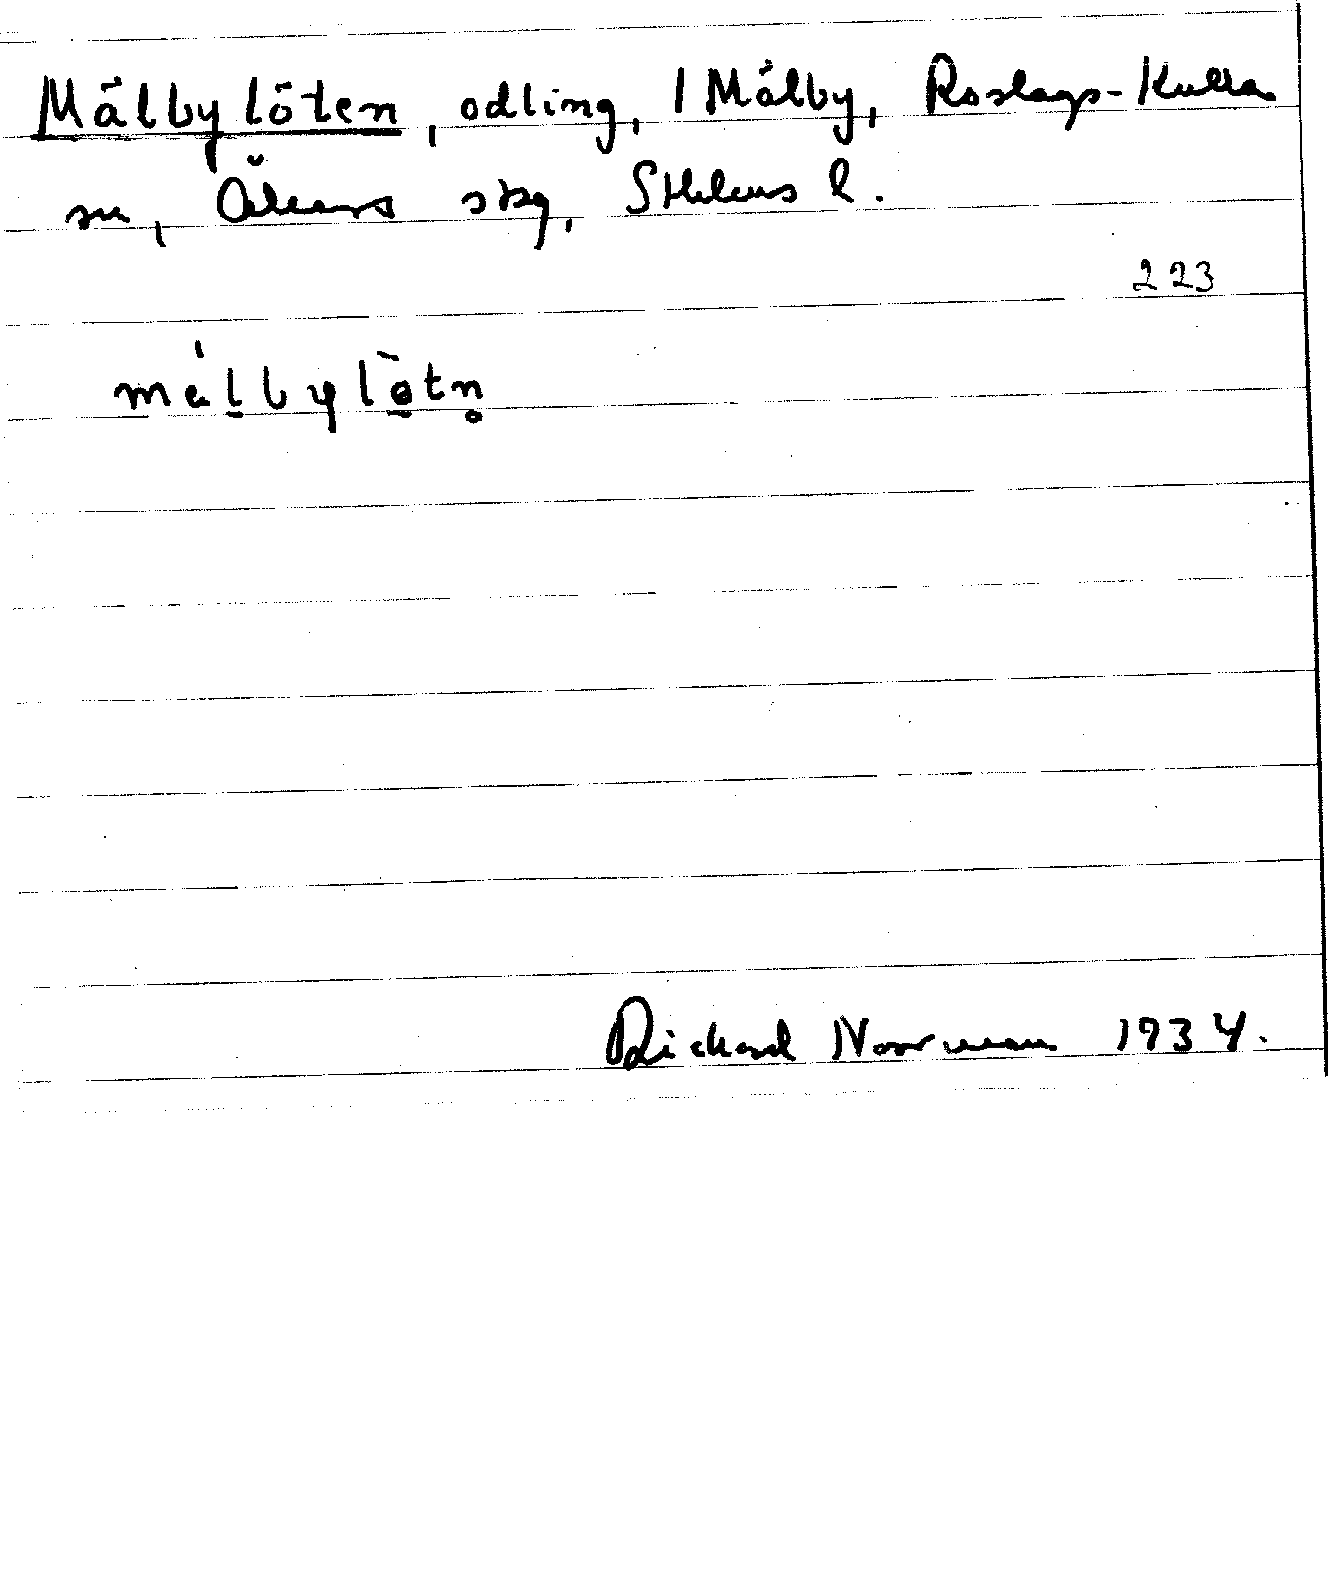 Målbylöten, odling, 1 Målby, Roslags-Kulla
sn, Åkers skg, Sthlms l.
223
målbylötn̥
Richard Norrman 1934.